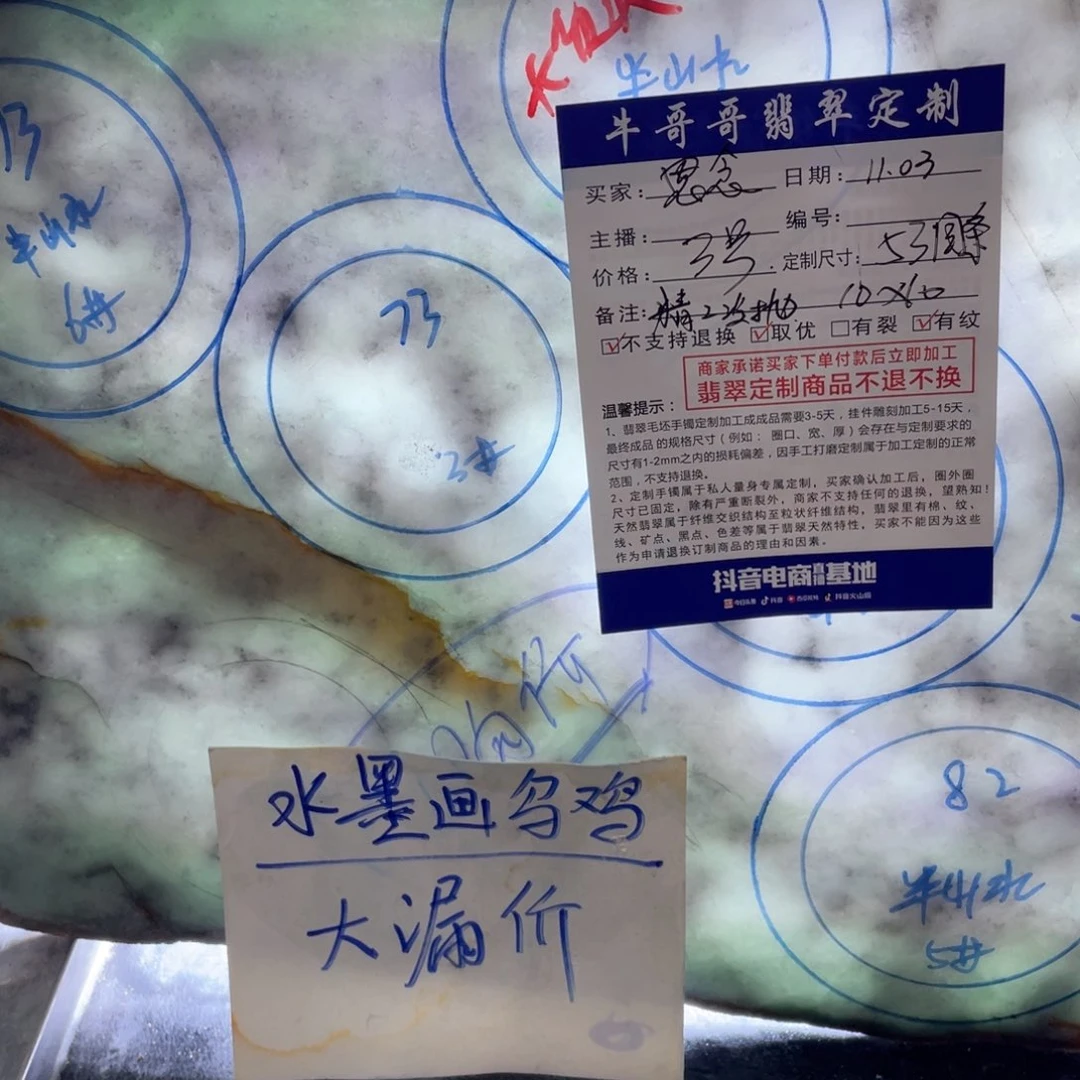 半山水
牛哥哥翡翠定制
买家: 思念 日期: 11.03
主播: 编号:
价格: 3号 定制尺寸: 53圆条
备注: 精工发抛 10×10
不支持退换 取优 有裂 有纹
商家承诺买家下单付款后立即加工
翡翠定制商品不退不换
温馨提示:
1、翡翠毛坯手镯定制加工成成品需要3-5天，挂件雕刻加工5-15天，
最终成品的规格尺寸（例如：圈口、宽、厚）会存在与定制要求的
尺寸有1-2mm之内的损耗偏差，因手工打磨定制属于加工定制的正常
范围，不支持退换。
2、定制手镯属于私人量身专属定制，买家确认加工后，圈外圈
尺寸已固定，除有严重断裂外，商家不支持任何的退换，望熟知！
天然翡翠属于纤维交织结构至粒状纤维结构，翡翠里有棉、纹、
线、矿点、黑点、色差等属于翡翠天然特性，买家不能因为这些
作为申请退换订制商品的理由和因素。
抖音电商直播基地
今日头条 抖音 西瓜视频 抖音火山版
73
半山水
6#
73
3#
水墨画乌鸡
大漏价
82
半山水
5#